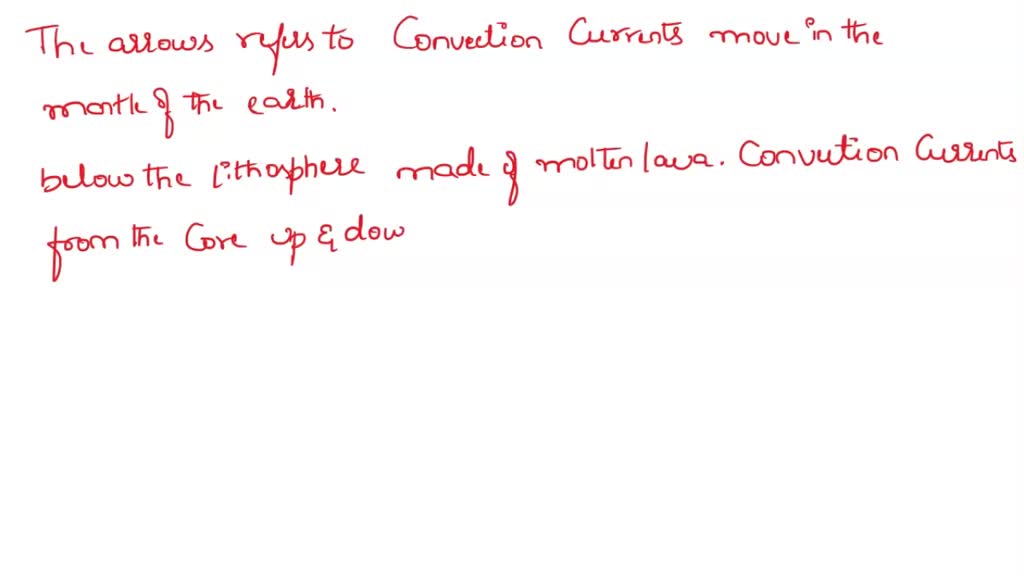 The arrows refers to Convection Currents move in the
mantle of the earth.
below the lithosphere made of molten lava. Convection Currents
from the Core up & dow